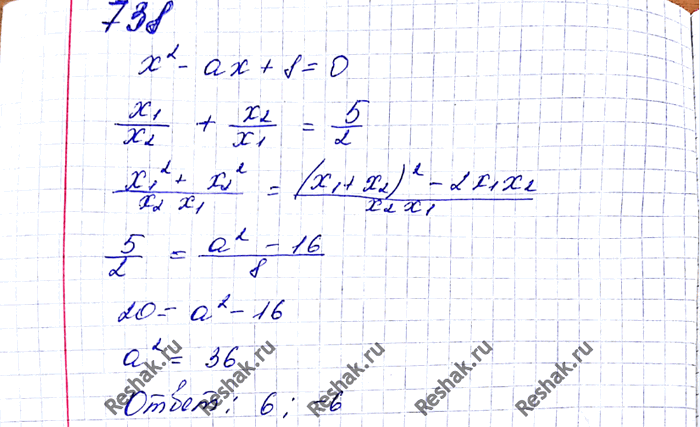 738
x² - ax + 8 = 0
x₁/x₂ + x₂/x₁ = 5/2
(x₁² + x₂²)/(x₂ x₁) = ((x₁ + x₂)² - 2x₁x₂)/(x₂ x₁)
5/2 = (a² - 16)/8
20 = a² - 16
a² = 36
Ответ: 6; -6
Reshak.ru
Reshak.ru
Reshak.ru
Reshak.ru
Reshak.ru